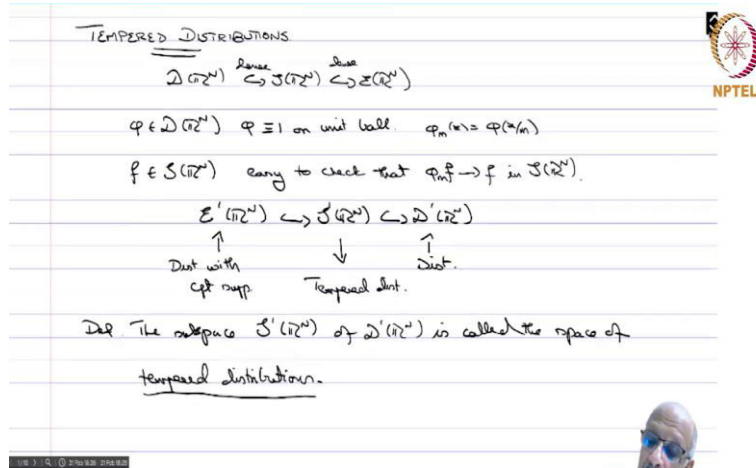 TEMPERED DISTRIBUTIONS
NPTEL
dense dense
D(ℝᴺ) ↪ S(ℝᴺ) ↪ E(ℝᴺ)
φ ∈ D(ℝᴺ) φ ≡ 1 on unit ball. φₘ(x) = φ(x/m)
f ∈ S(ℝᴺ) easy to check that φₘf → f in S(ℝᴺ).
E'(ℝᴺ) ↪ S'(ℝᴺ) ↪ D'(ℝᴺ)
↑ ↓ ↑
Dist with Dist.
cpt supp. Tempered dist.
Def. The subspace S'(ℝᴺ) of D'(ℝᴺ) is called the space of
tempered distributions.